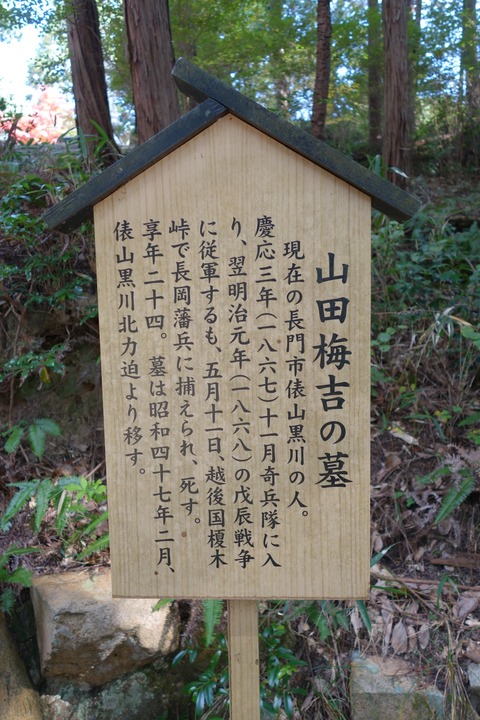 山田梅吉の墓
現在の長門市俵山黒川の人。
慶応三年(一八六七)十一月奇兵隊に入
り、翌明治元年(一八六八)の戊辰戦争
に従軍するも、五月十一日、越後国榎木
峠で長岡藩兵に捕えられ、死す。
享年二十四。墓は昭和四十七年二月、
俵山黒川北力迫より移す。